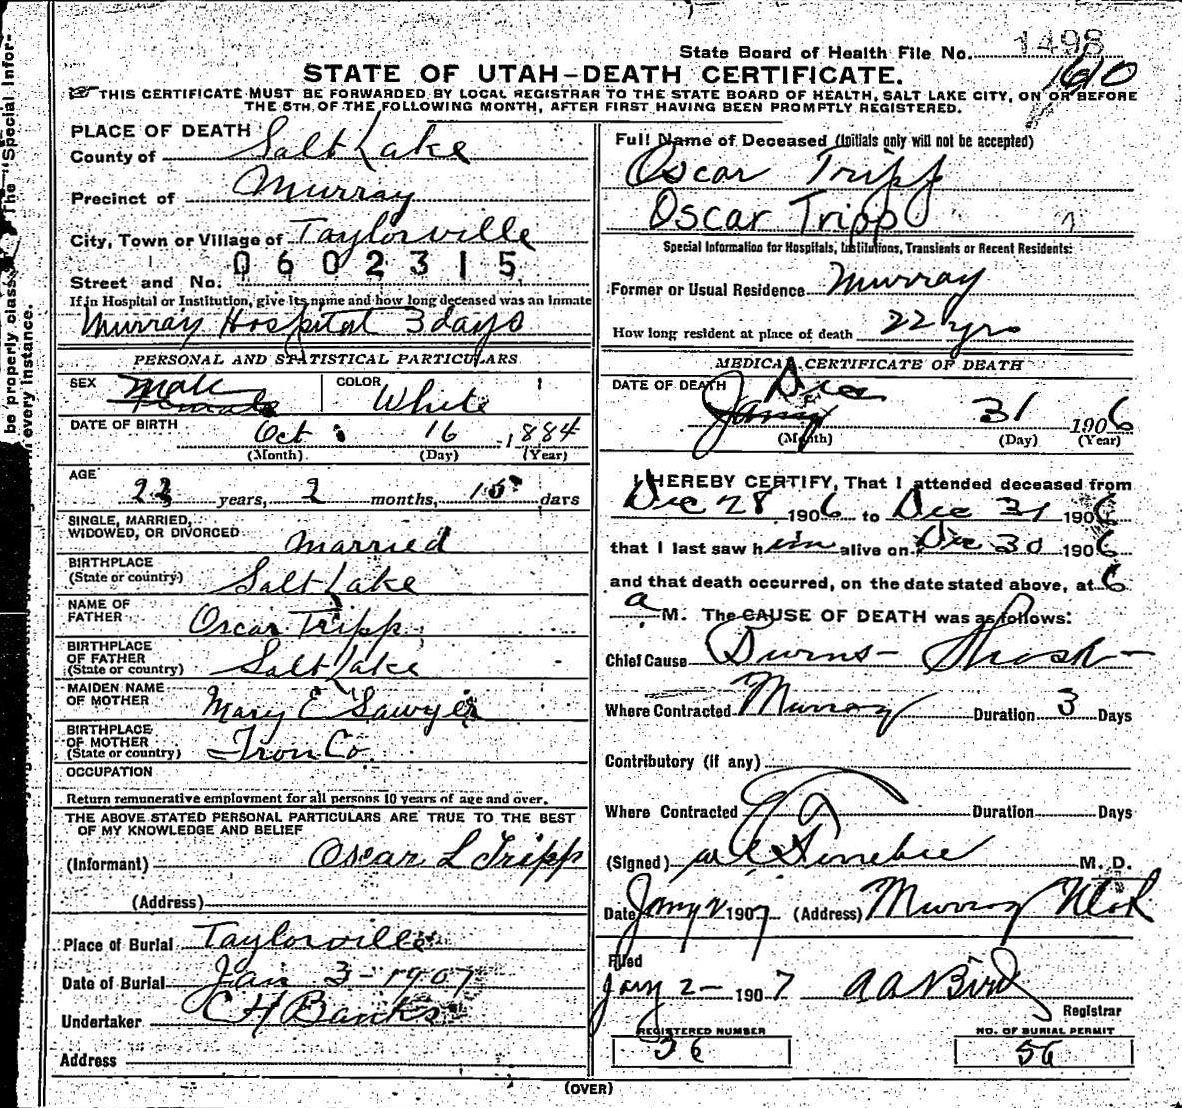 State Board of Health File No. 1498
1610
STATE OF UTAH-DEATH CERTIFICATE.
THIS CERTIFICATE MUST BE FORWARDED BY LOCAL REGISTRAR TO THE STATE BOARD OF HEALTH, SALT LAKE CITY, ON OR BEFORE
THE 5TH OF THE FOLLOWING MONTH, AFTER FIRST HAVING BEEN PROMPTLY REGISTERED.
The "Special Infor-
be properly class
every instance.
PLACE OF DEATH
County of Salt Lake
Precinct of Murray
City, Town or Village of Taylorville
Street and No. 0602315
If in Hospital or Institution, give its name and how long deceased was an Inmate
Murray Hospital 3 days
PERSONAL AND STATISTICAL PARTICULARS
SEX Male Female COLOR White
DATE OF BIRTH Oct 16 1884
(Month) (Day) (Year)
AGE 22 years, 2 months, 15 days
SINGLE, MARRIED,
WIDOWED, OR DIVORCED Married
BIRTHPLACE
(State or country) Salt Lake
NAME OF
FATHER Oscar Tripp
BIRTHPLACE
OF FATHER
(State or country) Salt Lake
MAIDEN NAME
OF MOTHER Mary E Sawyer
BIRTHPLACE
OF MOTHER
(State or country) Iron Co
OCCUPATION
Return remunerative employment for all persons 10 years of age and over.
THE ABOVE STATED PERSONAL PARTICULARS ARE TRUE TO THE BEST
OF MY KNOWLEDGE AND BELIEF
(Informant) Oscar L Tripp
(Address)
Place of Burial Taylorville
Date of Burial Jan 3-1907
Undertaker C H Banks
Address
Full Name of Deceased (Initials only will not be accepted)
Oscar Tripp
Oscar Tripp
Special Information for Hospitals, Institutions, Transients or Recent Residents:
Former or Usual Residence Murray
How long resident at place of death 22 yrs
MEDICAL CERTIFICATE OF DEATH
DATE OF DEATH Dec
Jany 31 1906
(Month) (Day) (Year)
I HEREBY CERTIFY, That I attended deceased from
Dec 28 1906 to Dec 31 1906
that I last saw him alive on Dec 30 1906
and that death occurred, on the date stated above, at 6
a M. The CAUSE OF DEATH was as follows:
Chief Cause Burns - Shock -
Where Contracted Murray Duration 3 Days
Contributory (if any)
Where Contracted Duration Days
(Signed) M. D.
Date Jany 2 1907 (Address) Murray Utah
Filed
Jany 2- 1907 A A Bird
Registrar
REGISTERED NUMBER
36
NO. OF BURIAL PERMIT
56
(OVER)